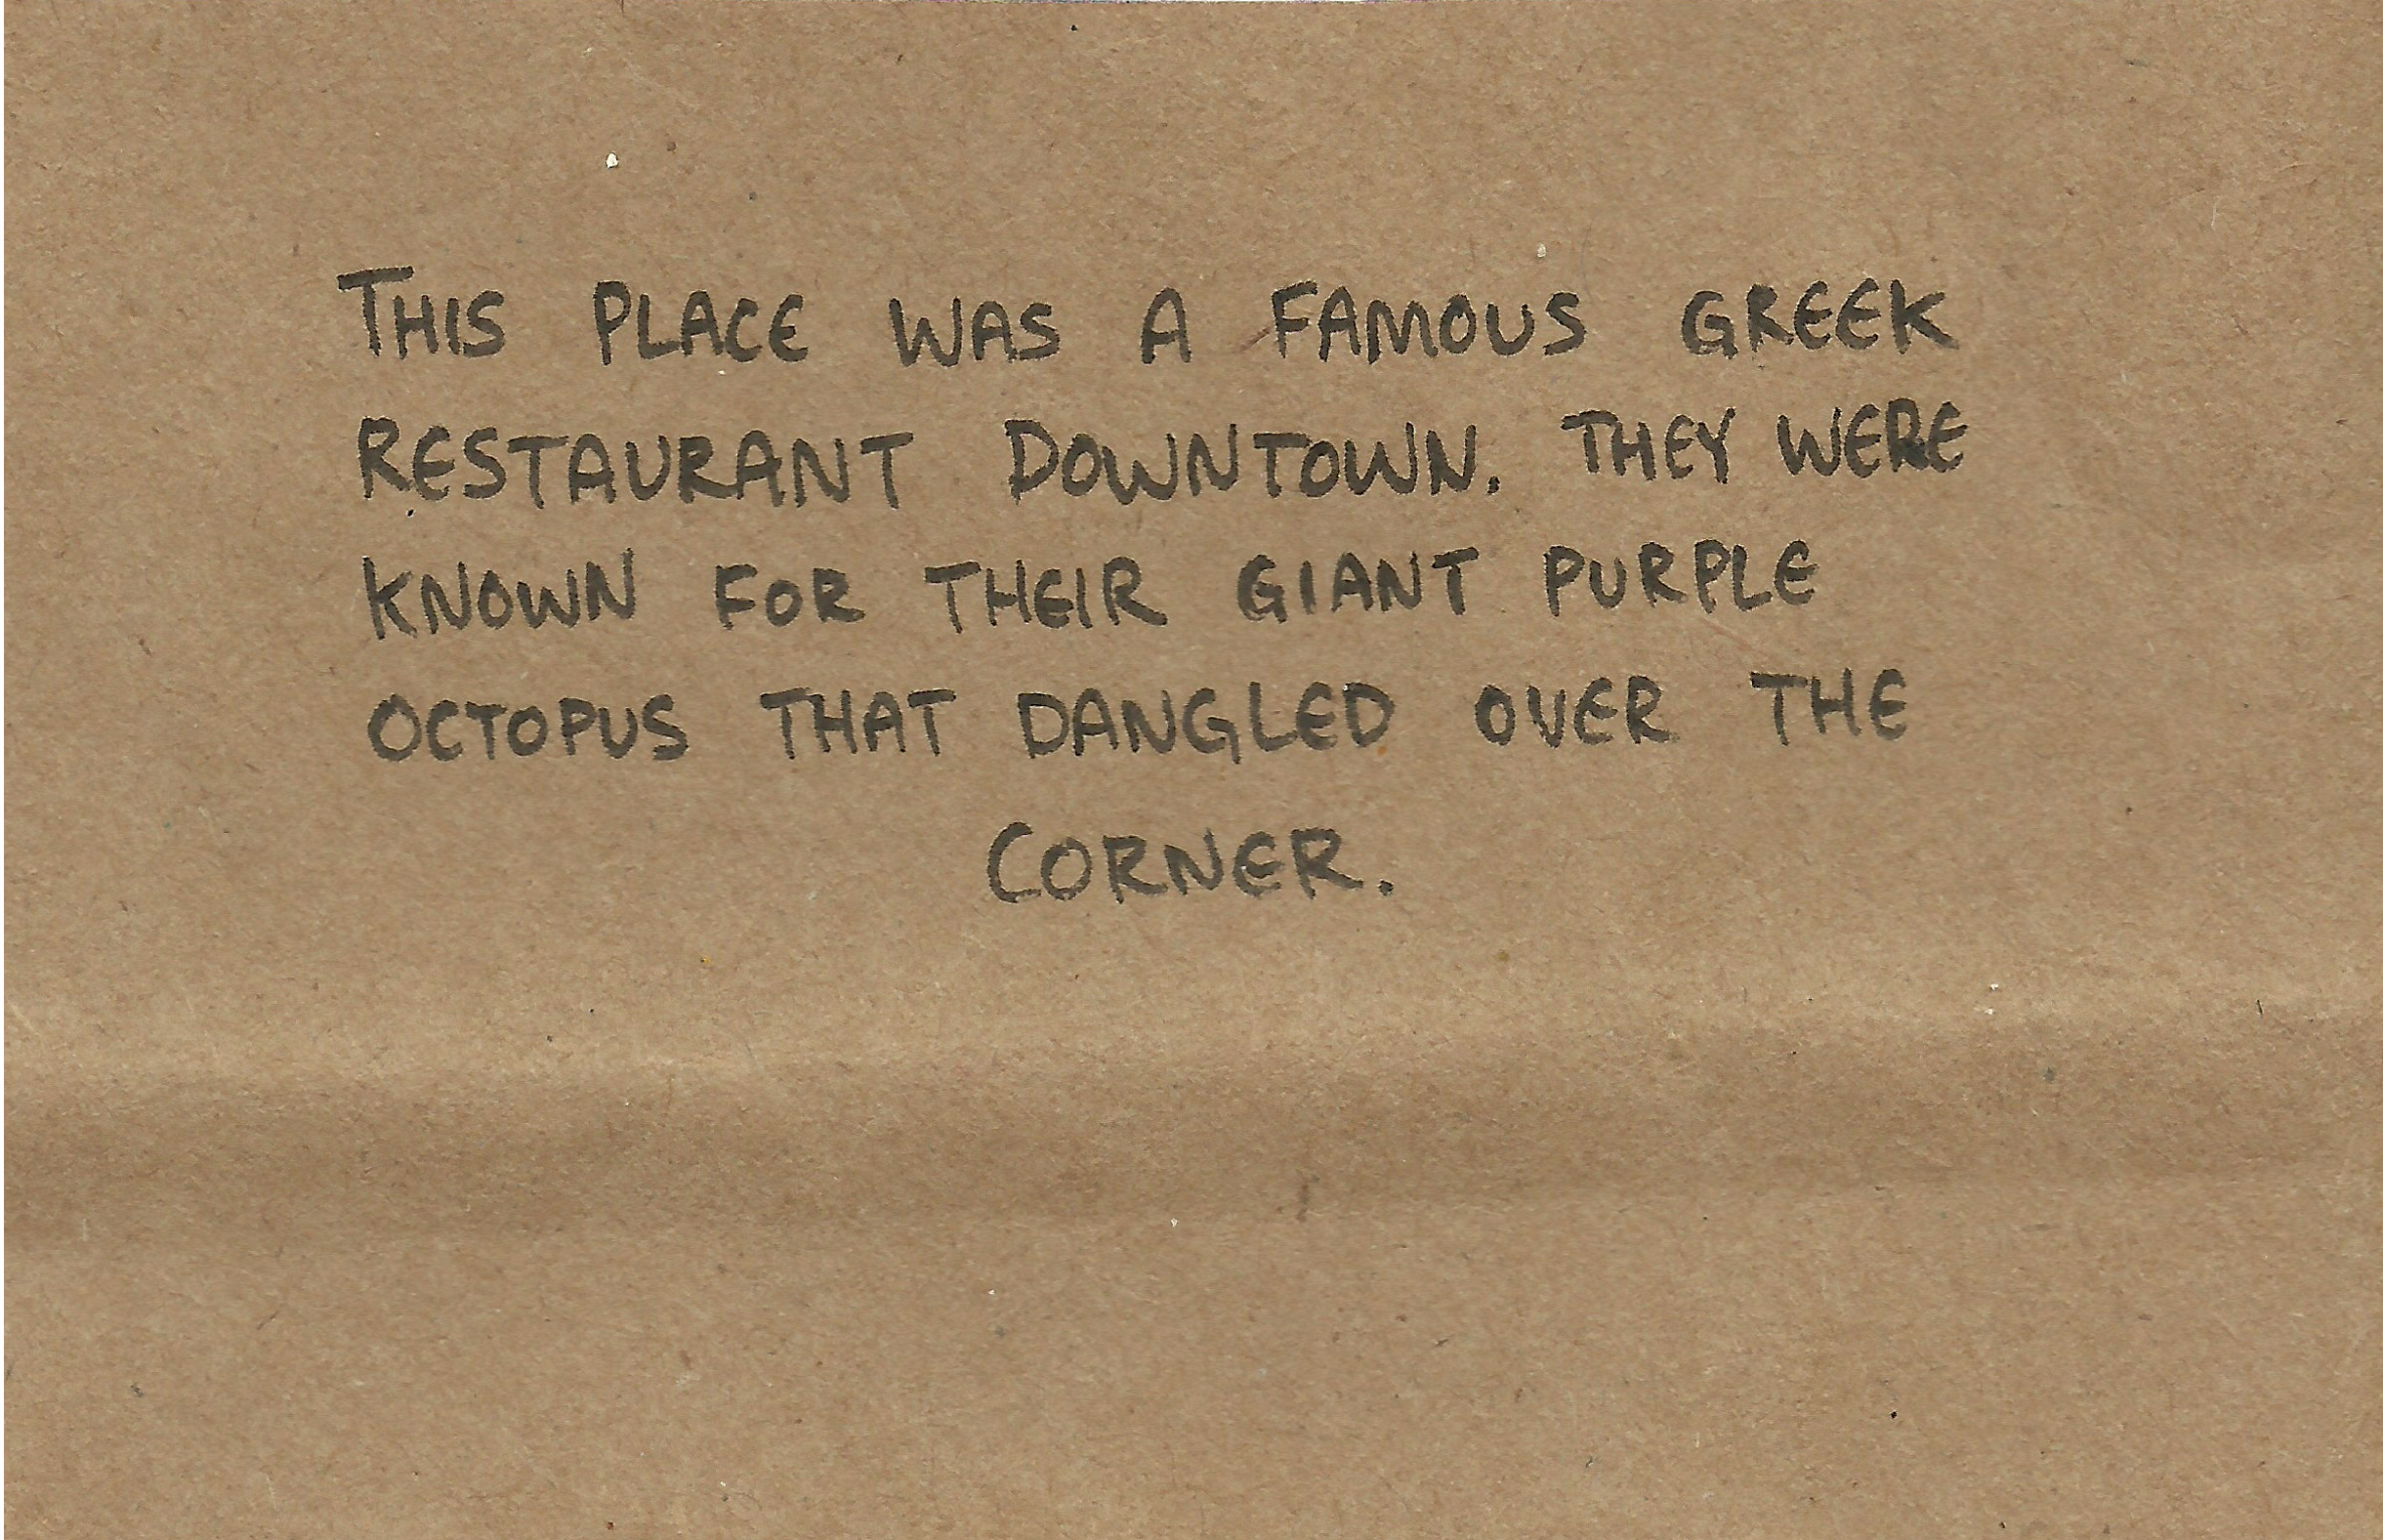 THIS PLACE WAS A FAMOUS GREEK
RESTAURANT DOWNTOWN. THEY WERE
KNOWN FOR THEIR GIANT PURPLE
OCTOPUS THAT DANGLED OVER THE
CORNER.